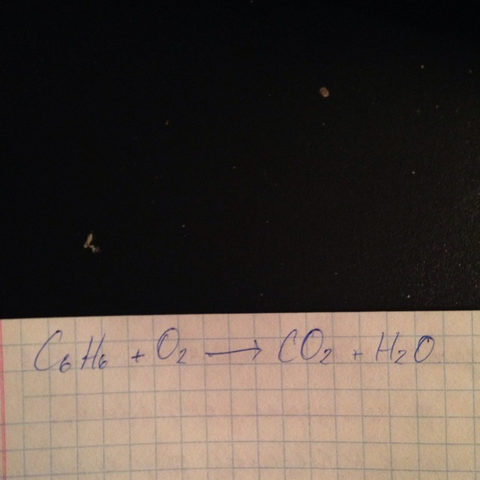 C₆H₆ + O₂ ⟶ CO₂ + H₂O